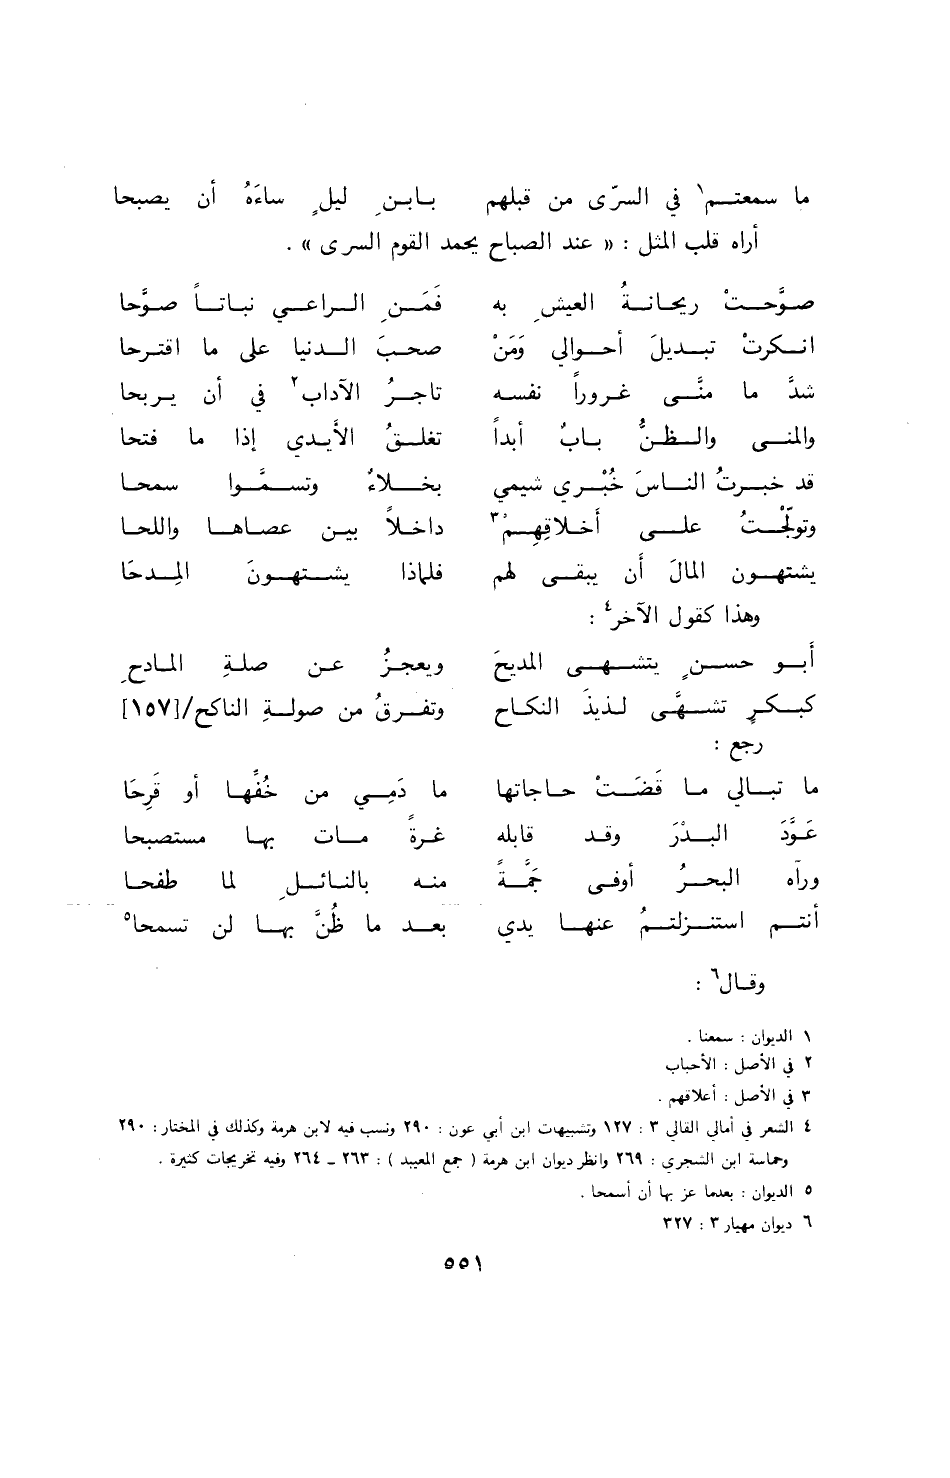 ما سمعتم١ في السرّى من قبلهم بابنِ ليلٍ ساءَهُ أن يصبحا
أراه قلب المثل : « عند الصباح يحمد القوم السرى » .
صوَّحتْ ريحانةُ العيشِ به فمَنِ الراعي نباتاً صوَّحا
انكرتْ تبديلَ أحوالي ومَنْ صحبَ الدنيا على ما اقترحا
شدَّ ما منَّى غروراً نفسه تاجرُ الآداب٢ في أن يربحا
والمنى والظنُّ بابٌ أبداً تغلقُ الأيدي إذا ما فتحا
قد خبرتُ الناسَ خُبْري شيمي بخلاءً وتسمَّوا سمحا
وتولّجتُ على أخلاقِهمْ٣ داخلاً بين عصاها واللحا
يشتهون المالَ أن يبقى لهم فلماذا يشتهونَ المِدحَا
وهذا كقول الآخر٤ :
أبو حسنٍ يتشهى المديحَ ويعجزُ عن صلةِ المادحِ
كبكرٍ تشهَّى لذيذَ النكاح وتفرقُ من صولةِ الناكح/[١٥٧]
رجع :
ما تبالي ما قَضَتْ حاجاتها ما دَمِي من خُفِّها أو قَرِحَا
عَوَّدَ البدْرَ وقد قابله غرةً مات بها مستصبحا
ورآه البحرُ أوفى جَمَّةً منه بالنائلِ لما طفحا
أنتم استنزلتمُ عنها يدي بعد ما ظُنَّ بها لن تسمحا٥
وقال٦ :
١ الديوان : سمعنا .
٢ في الأصل : الأحباب
٣ في الأصل : أعلاقهم .
٤ الشعر في أمالي القالي ٣ : ١٢٧ وتشبيهات ابن أبي عون : ٢٩٠ ونسب فيه لابن هرمة وكذلك في المختار : ٢٩٠
وحماسة ابن الشجري : ٢٦٩ وانظر ديوان ابن هرمة ( جمع المعيبد ) : ٢٦٣ ـ ٢٦٤ وفيه تخريجات كثيرة .
٥ الديوان : بعدما عز بها أن أسمحا .
٦ ديوان مهيار ٣ : ٣٢٧
٥٥١